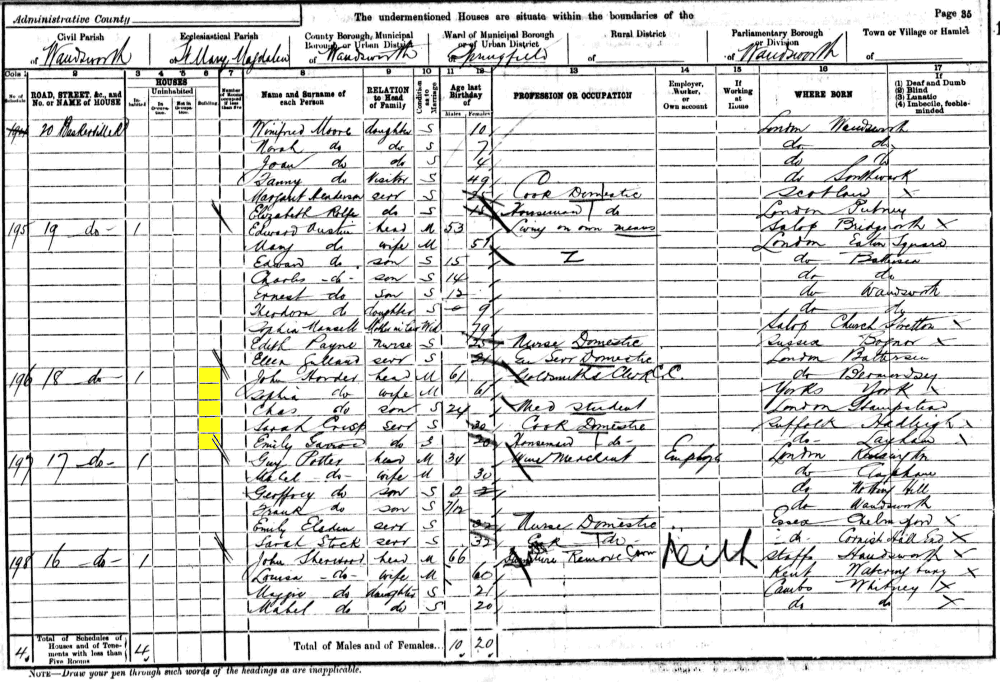 Administrative County
The undermentioned Houses are situate within the boundaries of the
Page 35
Civil Parish
of Wandsworth
Ecclesiastical Parish
of St Mary Magdalen
County Borough, Municipal Borough, or Urban District
of Wandsworth
Ward of Municipal Borough or of Urban District
of Springfield
Rural District
of
Parliamentary Borough or Division
of Wandsworth
Town or Village or Hamlet
of
Cols 1 2 3 4 5 6 7 8 9 10 11 12 13 14 15 16 17
No. of Schedule ROAD, STREET, &c., and No. or NAME of HOUSE HOUSES Inhabited Uninhabited In Occupation Not in Occupation Building Name and Surname of each Person RELATION to Head of Family Condition as to Marriage Age last Birthday of Males Females PROFESSION OR OCCUPATION Employer, Worker, or Own account If Working at Home WHERE BORN If (1) Deaf and Dumb (2) Blind (3) Lunatic (4) Imbecile, feeble-minded
20 Baskerville Rd Winifred Moore daughter S 10 London Wandsworth
Norah do do S 7 do do
Joan do do S 4 do do
Fanny do Visitor S 49 do Southwark
Margaret Henderson serv S 25 Cook Domestic Scotland
Elizabeth Rolfe do S Housemaid do London Putney
195 19 -do- 1 Edward Austin head M 53 Living on own means Salop Bridgnorth
Mary do wife M 51 London Eaton Square
Edward do son S 15 do Battersea
Charles -do- son S 14 do do
Ernest do son S 12 do Wandsworth
Theodora do daughter S 9 do do
Sophia Mansell Mother in law Wid 79 Salop Church Stretton
Edith Payne nurse S 25 Nurse Domestic Sussex Bognor
Ellen serv S 21 Gen Serv Domestic London Battersea
196 18 -do- 1 John Horder head M 61 Goldsmiths Clerk do Bermondsey
Sophia do wife M 61 Yorks York
Chas do son S 24 Med student London Hampstead
Sarah Crisp serv S 30 Cook Domestic Suffolk Hadleigh
Emily do S 20 Housemaid -do- -do- Layham
197 17 -do- 1 Guy Potter head M 34 Wine Merchant Employer London Kensington
Mabel -do- wife M 30 do Clapham
Geoffrey do son S 2 do Notting Hill
Frank do son S 7/12 do Wandsworth
Emily serv S 22 Nurse Domestic Essex Chelmsford
Sarah Stock serv S 32 Cook do -do- Cornish Hall End
198 16 -do- 1 John Sherwood head M 66 Staffs Handsworth
Louisa -do- wife M 60 Kent Wateringbury
daughter S 21 Cambs
Mabel do do S 20 do do
4 Total of Schedules of Houses and of Tenements with less than Five Rooms 4 Total of Males and of Females... 10 20
NOTE—Draw your pen through such words of the headings as are inapplicable.